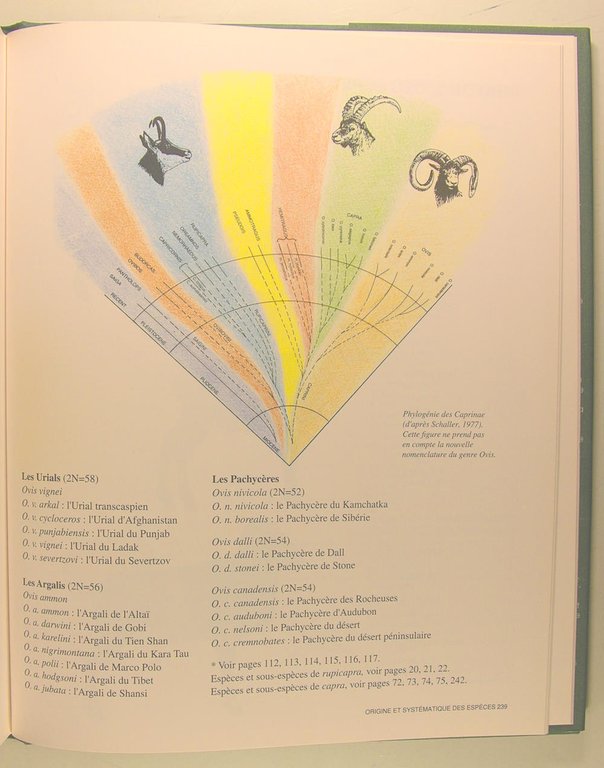 PSEUDOIS
AMMOTRAGUS
HEMITRAGUS
CAPRA
OVIS
RUPICAPRA
OREAMNOS
NEMORHAEDUS
CAPRICORNIS
BUDORCAS
OVIBOS
PANTHOLOPS
SAIGA
RECENT
PLEISTOCENE
PLIOCENE
MIOCENE
CAPRINI
Phylogénie des Caprinae
(d'après Schaller, 1977).
Cette figure ne prend pas
en compte la nouvelle
nomenclature du genre Ovis.
Les Urials (2N=58)
Ovis vignei
O. v. arkal : l'Urial transcaspien
O. v. cycloceros : l'Urial d'Afghanistan
O. v. punjabiensis : l'Urial du Punjab
O. v. vignei : l'Urial du Ladak
O. v. severtzovi : l'Urial du Severtzov
Les Argalis (2N=56)
Ovis ammon
O. a. ammon : l'Argali de l'Altaï
O. a. darwini : l'Argali de Gobi
O. a. karelini : l'Argali du Tien Shan
O. a. nigrimontana : l'Argali du Kara Tau
O. a. polii : l'Argali de Marco Polo
O. a. hodgsoni : l'Argali du Tibet
O. a. jubata : l'Argali de Shansi
Les Pachycères
Ovis nivicola (2N=52)
O. n. nivicola : le Pachycère du Kamchatka
O. n. borealis : le Pachycère de Sibérie
Ovis dalli (2N=54)
O. d. dalli : le Pachycère de Dall
O. d. stonei : le Pachycère de Stone
Ovis canadensis (2N=54)
O. c. canadensis : le Pachycère des Rocheuses
O. c. auduboni : le Pachycère d'Audubon
O. c. nelsoni : le Pachycère du désert
O. c. cremnobates : le Pachycère du désert péninsulaire
* Voir pages 112, 113, 114, 115, 116, 117.
Espèces et sous-espèces de rupicapra, voir pages 20, 21, 22.
Espèces et sous-espèces de capra, voir pages 72, 73, 74, 75, 242.
ORIGINE ET SYSTÉMATIQUE DES ESPÈCES 239